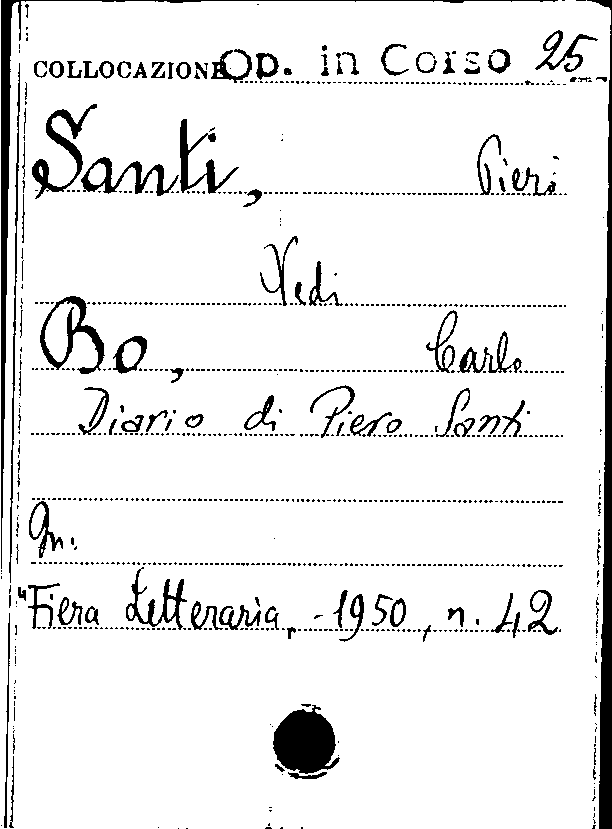 COLLOCAZIONE Op. in Corso 25
Santi, Piero
Vedi
Bo, Carlo
Diario di Piero Santi
In.
"Fiera Letteraria„ - 1950, n. 42